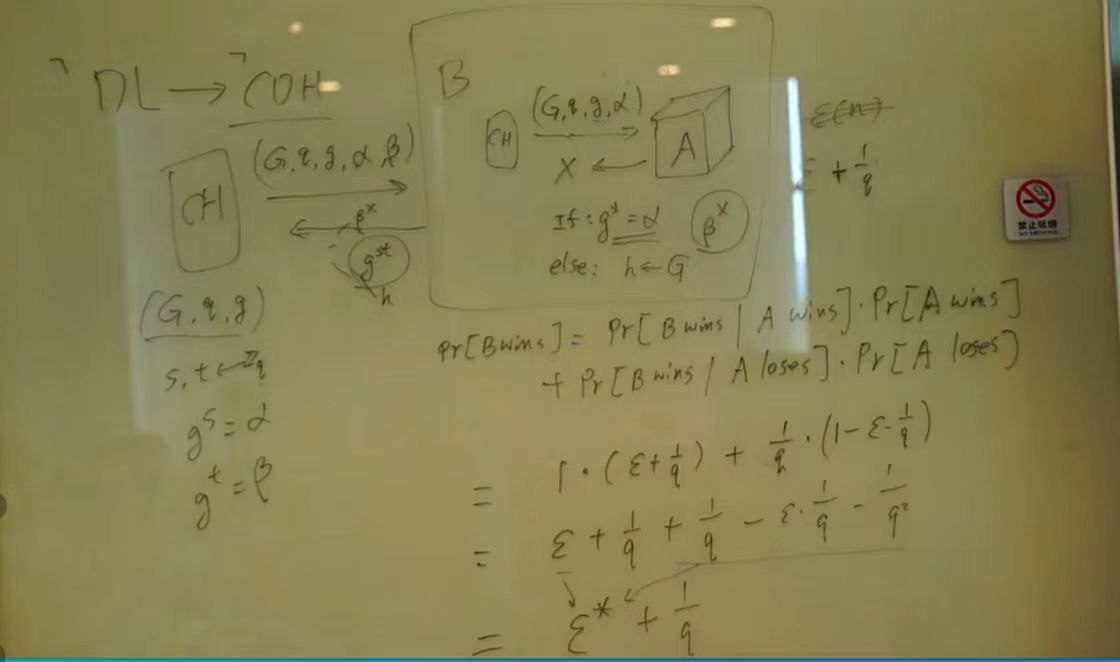 ¬DL → ¬CDH
CH
(G, q, g, α β)
β^x
g^st
h
(G, q, g)
s, t ← Z_q
g^s = α
g^t = β
B
CH
(G, q, g, α)
x
A
If: g^x = α
β^x
else: h ← G
ε(n)
ε + 1/q
禁止吸烟
NO SMOKING
Pr[B wins] = Pr[B wins | A wins] · Pr[A wins]
+ Pr[B wins | A loses] · Pr[A loses]
= 1 · (ε + 1/q) + 1/q · (1 - ε - 1/q)
= ε + 1/q + 1/q - ε · 1/q - 1/q²
= ε* + 1/q